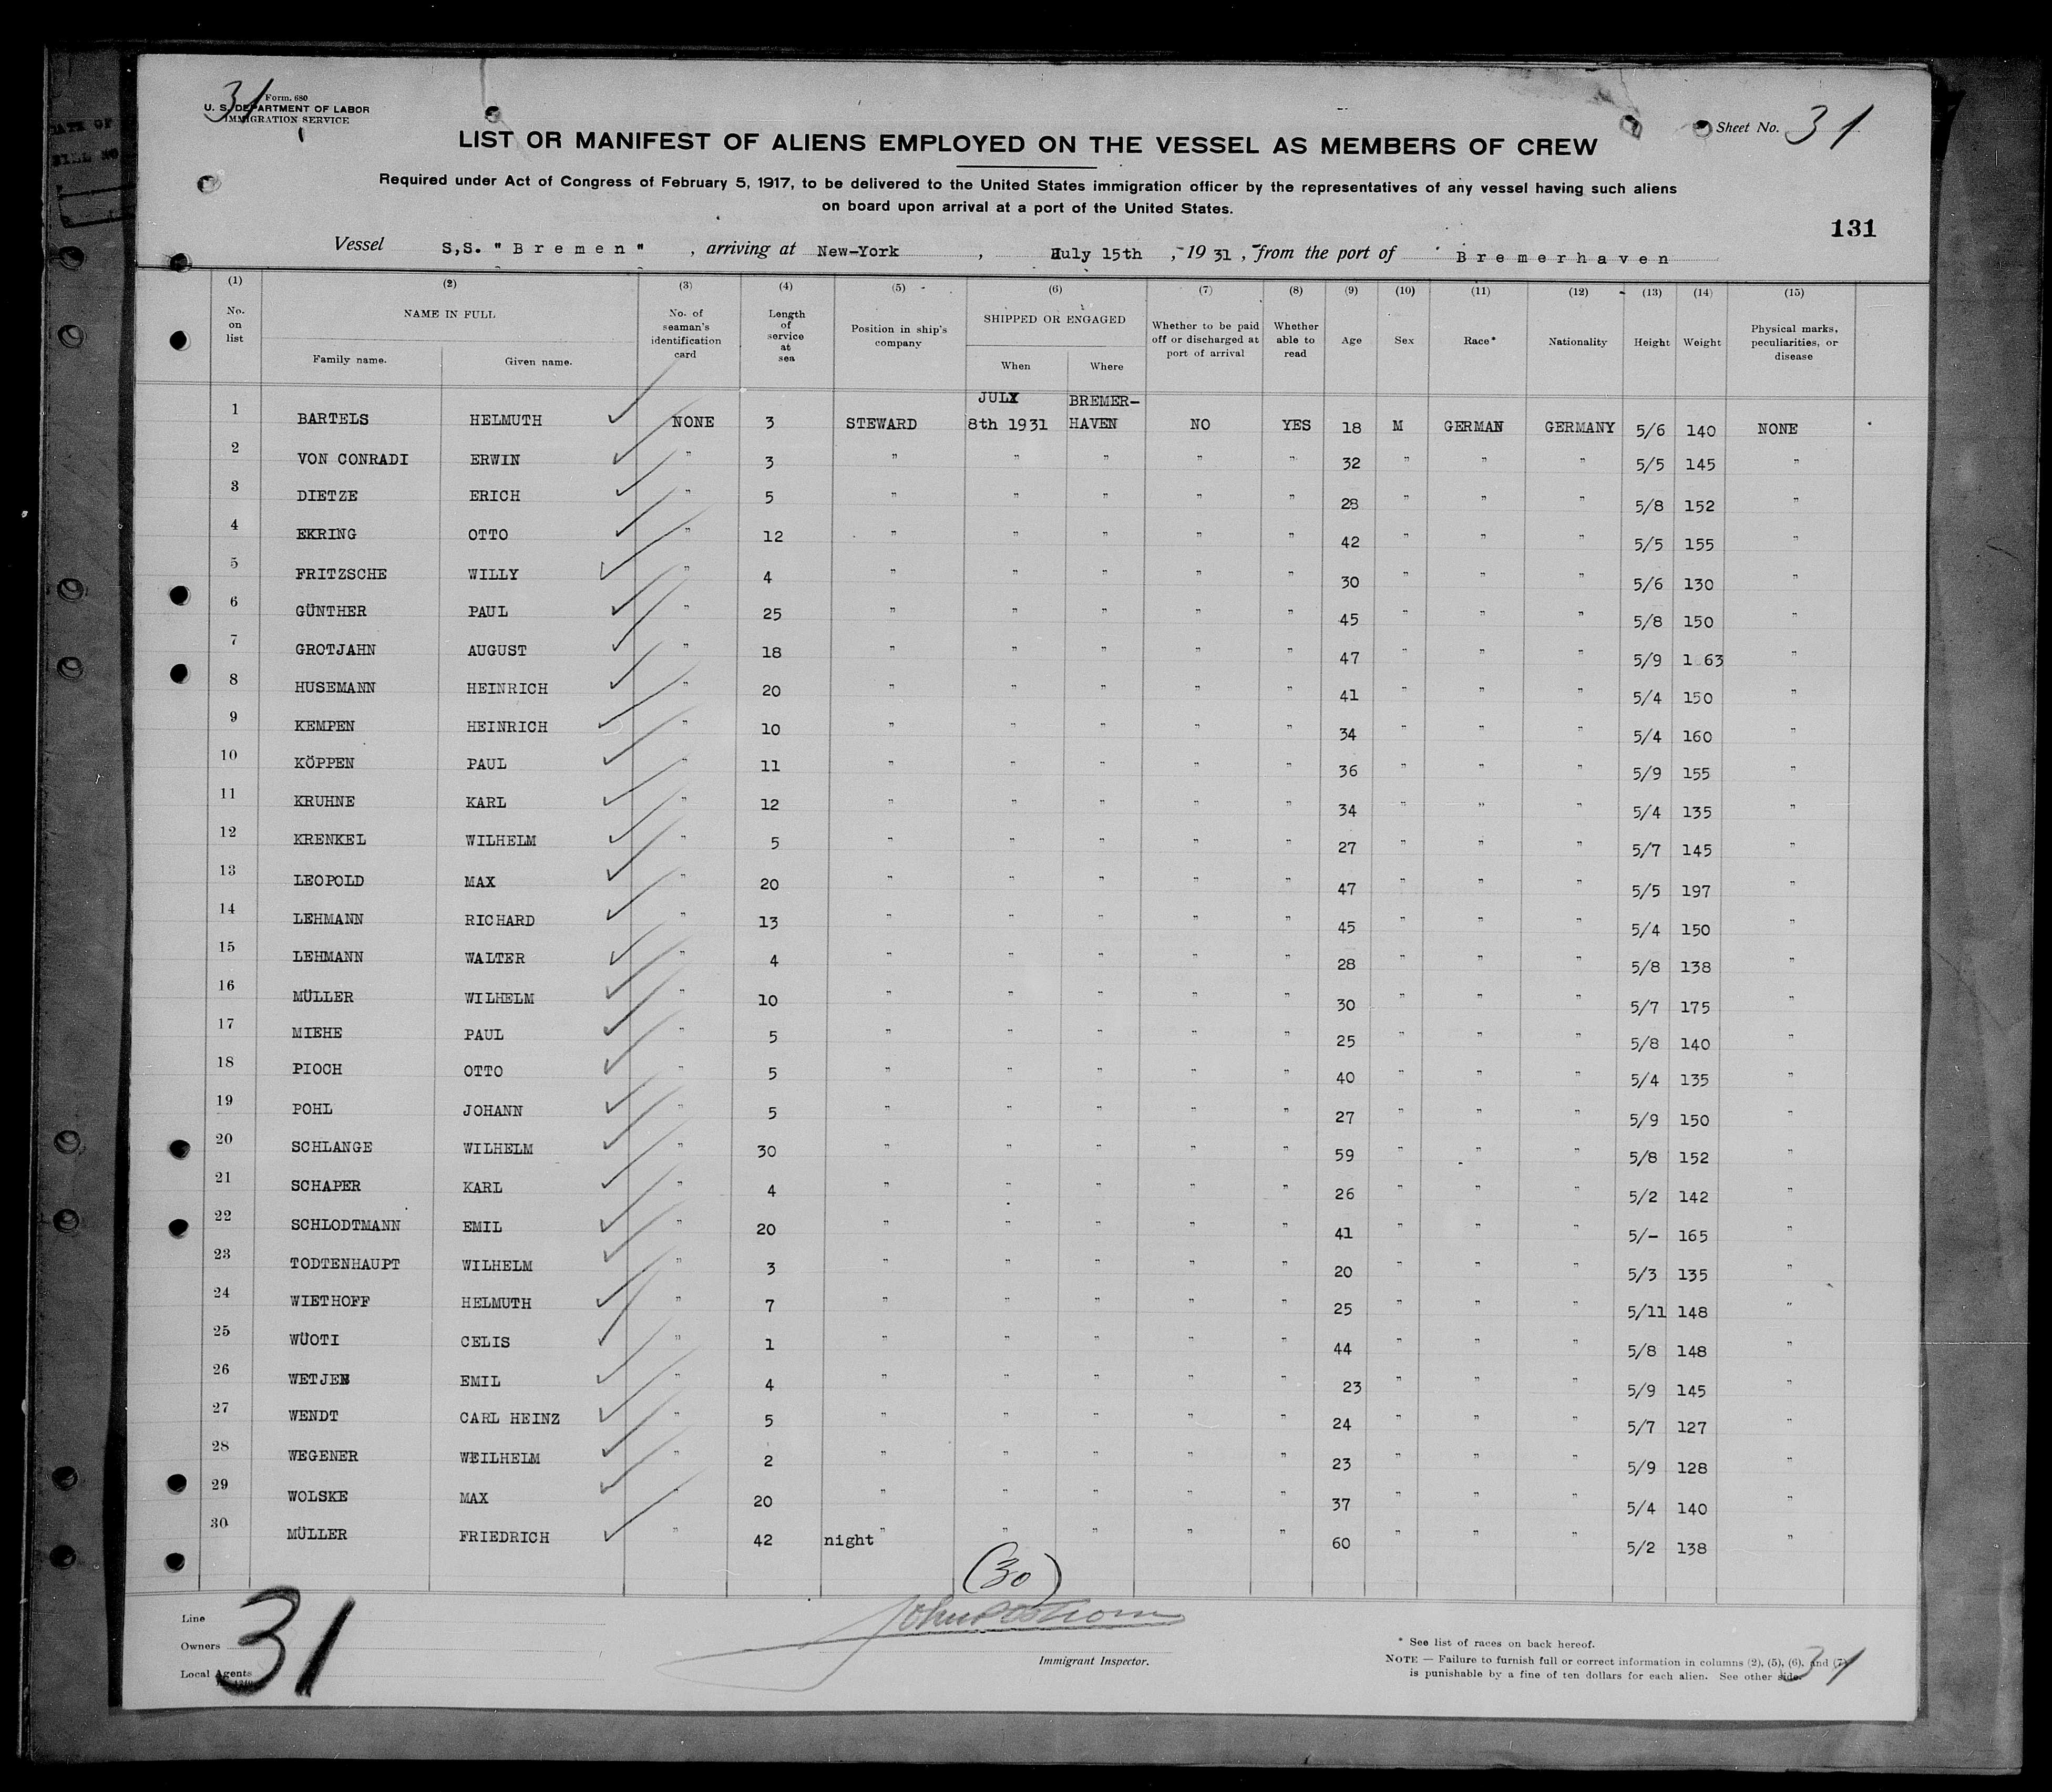 31
Form. 680
U. S. DEPARTMENT OF LABOR
IMMIGRATION SERVICE
Sheet No. 31
LIST OR MANIFEST OF ALIENS EMPLOYED ON THE VESSEL AS MEMBERS OF CREW
Required under Act of Congress of February 5, 1917, to be delivered to the United States immigration officer by the representatives of any vessel having such aliens
on board upon arrival at a port of the United States.
131
Vessel S,S. "Bremen", arriving at New-York, July 15th, 1931, from the port of Bremerhaven
(1) (2) (3) (4) (5) (6) (7) (8) (9) (10) (11) (12) (13) (14) (15)
No. on list NAME IN FULL Family name. Given name. No. of seaman's identification card Length of service at sea Position in ship's company SHIPPED OR ENGAGED When Where Whether to be paid off or discharged at port of arrival Whether able to read Age Sex Race* Nationality Height Weight Physical marks, peculiarities, or disease
JULY BREMER-
1 BARTELS HELMUTH NONE 3 STEWARD 8th 1931 HAVEN NO YES 18 M GERMAN GERMANY 5/6 140 NONE
2 VON CONRADI ERWIN " 3 " " " " " 32 " " " 5/5 145 "
3 DIETZE ERICH " 5 " " " " " 28 " " " 5/8 152 "
4 EKRING OTTO " 12 " " " " " 42 " " " 5/5 155 "
5 FRITZSCHE WILLY " 4 " " " " " 30 " " " 5/6 130 "
6 GÜNTHER PAUL " 25 " " " " " 45 " " " 5/8 150 "
7 GROTJAHN AUGUST " 18 " " " " " 47 " " " 5/9 1 63 "
8 HUSEMANN HEINRICH " 20 " " " " " 41 " " " 5/4 150 "
9 KEMPEN HEINRICH " 10 " " " " " 34 " " " 5/4 160 "
10 KÖPPEN PAUL " 11 " " " " " 36 " " " 5/9 155 "
11 KRUHNE KARL " 12 " " " " " 34 " " " 5/4 135 "
12 KRENKEL WILHELM " 5 " " " " " 27 " " " 5/7 145 "
13 LEOPOLD MAX " 20 " " " " " 47 " " " 5/5 197 "
14 LEHMANN RICHARD " 13 " " " " " 45 " " " 5/4 150 "
15 LEHMANN WALTER " 4 " " " " " 28 " " " 5/8 138 "
16 MÜLLER WILHELM " 10 " " " " " 30 " " " 5/7 175 "
17 MIEHE PAUL " 5 " " " " " 25 " " " 5/8 140 "
18 PIOCH OTTO " 5 " " " " " 40 " " " 5/4 135 "
19 POHL JOHANN " 5 " " " " " 27 " " " 5/9 150 "
20 SCHLANGE WILHELM " 30 " " " " " 59 " " " 5/8 152 "
21 SCHAPER KARL " 4 " " " " " 26 " " " 5/2 142 "
22 SCHLODTMANN EMIL " 20 " " " " " 41 " " " 5/- 165 "
23 TODTENHAUPT WILHELM " 3 " " " " " 20 " " " 5/3 135 "
24 WIETHOFF HELMUTH " 7 " " " " " 25 " " " 5/11 148 "
25 WÜOTI CELIS " 1 " " " " " 44 " " " 5/8 148 "
26 WETJEN EMIL " 4 " " " " " 23 " " " 5/9 145 "
27 WENDT CARL HEINZ " 5 " " " " " 24 " " " 5/7 127 "
28 WEGENER WEILHELM " 2 " " " " " 23 " " " 5/9 128 "
29 WOLSKE MAX " 20 " " " " " 37 " " " 5/4 140 "
30 MÜLLER FRIEDRICH " 42 night " " " " " 60 " " " 5/2 138 "
(30)
Line
Owners
Local Agents
31
Immigrant Inspector.
* See list of races on back hereof.
NOTE — Failure to furnish full or correct information in columns (2), (5), (6), and (7)
is punishable by a fine of ten dollars for each alien. See other side.
31